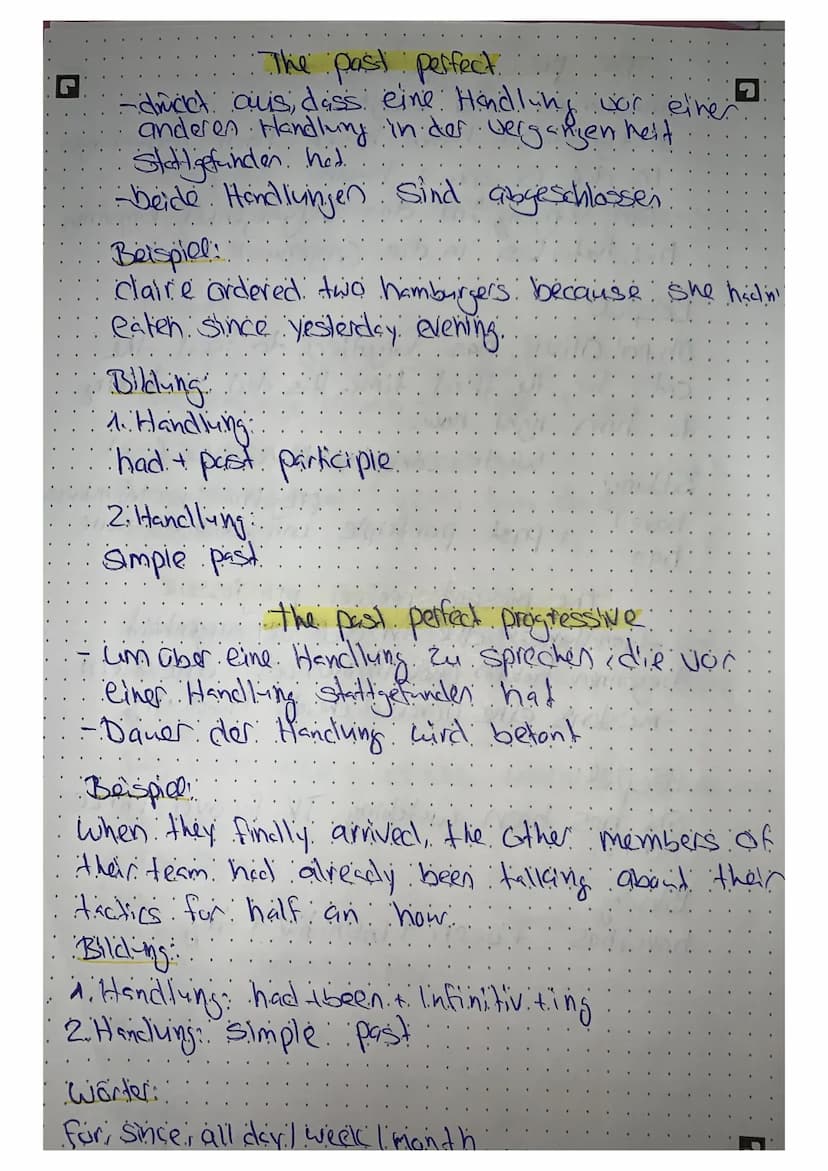 The past perfect
-drückt aus, dass eine Handlung vor einer
anderen Handlung in der vergangenheit
stattgefunden hat
-beide Handlungen sind abgeschlossen
Beispiel:
Claire ordered two hamburgers because she hadn'
eaten since yesterday evening.
Bildung:
1. Handlung:
had + past participle
2. Handlung:
simple past
the past perfect progressive
- um über eine Handlung zu sprechen, die vor
einer Handlung stattgefunden hat
- Dauer der Handlung wird betont
Beispiel:
when they finally arrived, the other members of
their team had already been talking about their
tactics for half an hour.
Bildung:
1. Handlung: had + been + Infinitiv + ing
2. Handlung: simple past
Wörter:
for, since, all day / week / month